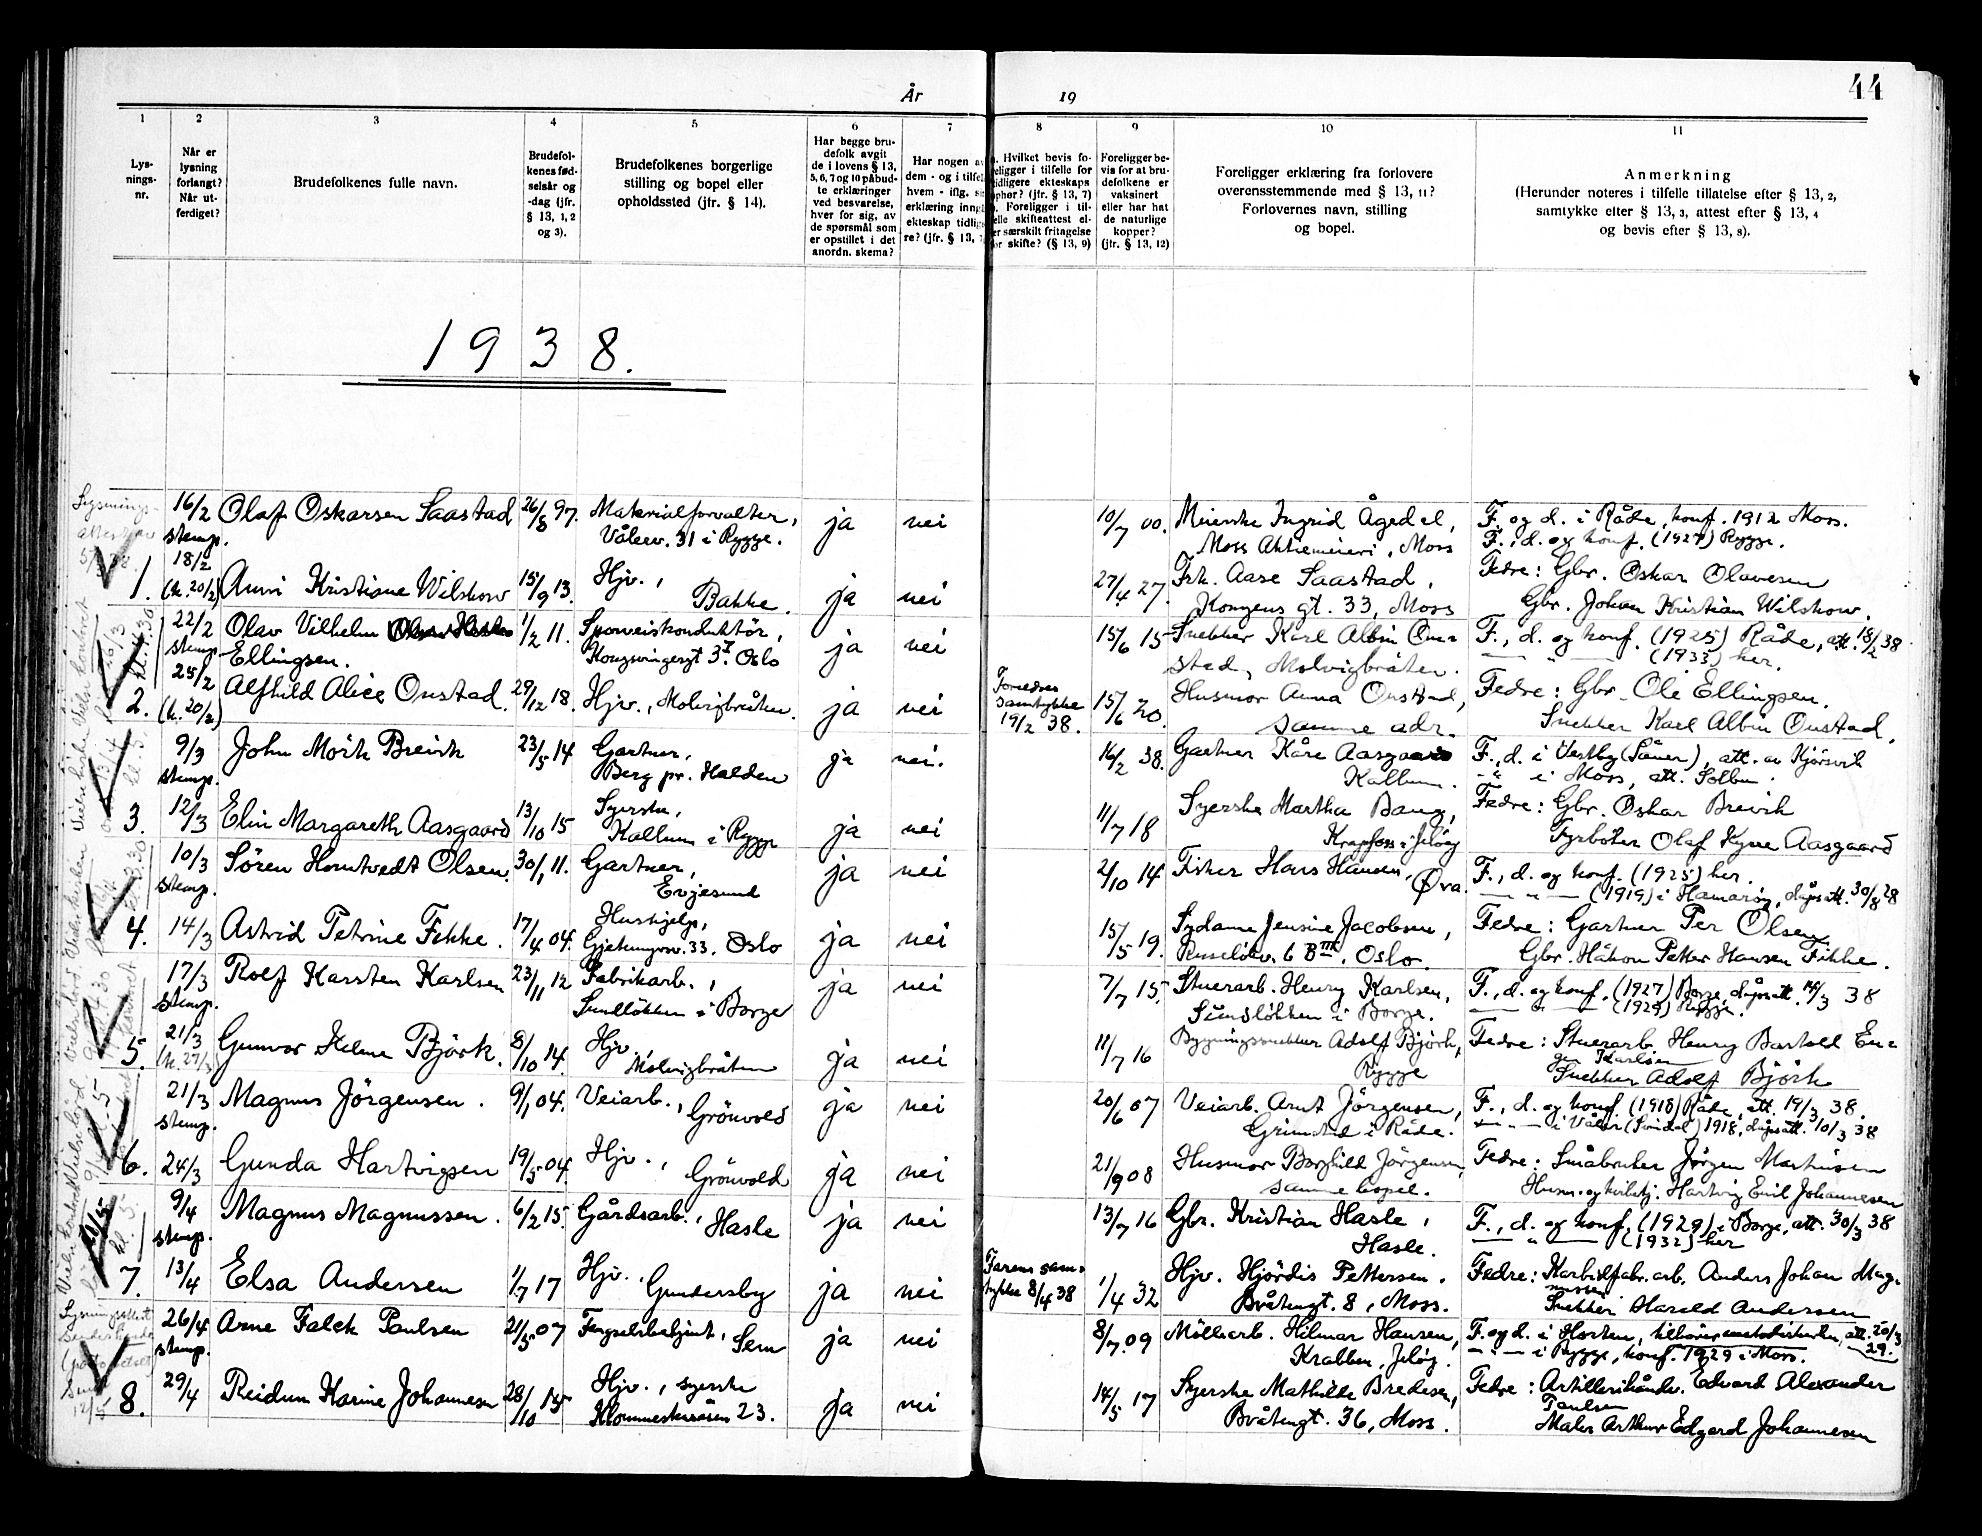 År 19
44
1 2 3 4 5 6 7 8 9 10 11
Lys-
nings-
nr.
Når er
lysning
forlangt?
Når ut-
ferdiget?
Brudefolkenes fulle navn.
Brudefol-
kenes fød-
selsår og
-dag (jfr.
§ 13, 1, 2
og 3).
Brudefolkenes borgerlige
stilling og bopel eller
opholdssted (jfr. § 14).
Har begge bru-
defolk avgit
de i lovens § 13,
5, 6, 7 og 10 påbud-
te erklæringer
ved besvarelse,
hver for sig, av
de spørsmål som
er opstillet i det
anordn. skema?
Har nogen av
dem - og i tilfel
hvem - iflg. si
erklæring inngå
ekteskap tidlig
re? (jfr. § 13,
Hvilket bevis fo-
religger i tilfelle for
tidligere ekteskaps
ophør? (jfr. § 13, 7)
Foreligger i til-
felle skifteattest el-
er særskilt fritagelse
for skifte? (§ 13, 9)
Foreligger be-
vis for at bru-
defolkene er
vaksinert
eller har hat
de naturlige
kopper?
(jfr. § 13, 12)
Foreligger erklæring fra forlovere
overensstemmende med § 13, 11?
Forlovernes navn, stilling
og bopel.
Anmerkning
(Herunder noteres i tilfelle tillatelse efter § 13, 2,
samtykke efter § 13, 3, attest efter § 13, 4
og bevis efter § 13, 8).
1938.
16/2 Olaf Oskarsen Saastad 26/8 97. Materialforvalter, ja nei 10/7 00. Meierske Ingrid Ågedel, F. og d. i Råde, konf. 1912 Moss.
stemp. Vålerv. 31 i Rygge. Moss Aktiemeieri, Moss F., d. og konf. (1927) Rygge.
18/2 Hjv., 27/4 27. Frk. Aase Saastad, Fedre: Gbr. Oskar Olavesen
1. (k. 20/2) Anni Kristiane Wilskow 15/9 13. Bakke. ja nei Kongens gt. 33, Moss Gbr. Johan Kristian Wilskow.
22/2 Olav Vilhelm 1/2 11. Sporveiskonduktör, ja nei 15/6 15 Snekker Karl Albin Onu-
stemp Ellingsen. Kongsvingergt 3I. Oslo stad, Molvigbråten. F., d. og konf. (1925) Råde, att. 18/2 38
— " — (1933) her.
25/2 Alfhild Alice Onstad. 29/12 18. Hjv., Molvigbråten. ja nei Foreldres samtykke 19/2 38. 15/6 20. Husmor Anna Onstad, Fedre: Gbr. Ole Ellingsen.
2. (k. 20/2) samme adr. Snekker Karl Albin Onstad.
9/3 John Mörk Breivik 23/5 14 Gartner, ja nei. 16/2 38. Gartner Kåre Aasgaard F., d. i Vestby (Såner), att. av Kjörsvik
stemp. Berg pr. Halden Kallum. — " — i Moss, att. Solbu.
12/3 Syerske, 11/7 18 Syerske Martha Baug, Fedre: Gbr. Oskar Breivik
3. Elin Margareth Aasgaard 13/10 15 Kallum i Rygge ja nei Krapfoss i Jelöy Fyrböter Olaf Kyrre Aasgaard
10/3 Sören Horntvedt Olsen. 30/1 11. Gartner, ja nei 2/10 14 Fisker Hans Hansen, Öra. F., d. og konf. (1925) her.
stemp. Evjesund — " — (1919) i Hamaröy, dåpsatt. 30/8 28
14/3 Hushjelp, 15/5 19. Sydame Jensine Jacobsen, Fedre: Gartner Per Olsen
4. Astrid Petrine Fikke. 17/4 04. Gjetemyrsv. 33. Oslo ja nei Ruselökv. 6 BIII. Oslo. Gbr. Håkon Petter Hansen Fikke.
17/3 Rolf Karsten Karlsen 23/11 12 Fabrikarb., ja nei 7/7 15. Stuerarb. Henry Karlsen, F., d. og konf. (1927) Borge, dåpsatt. 14/3 38
stemp. Sundlökken i Borge Sundslökken i Borge. — " — (1929) Rygge.
21/3 Hjv. 11/7 16 Bygningssnekker Adolf Björk, Fedre: Stuerarb. Henry Bartold Eu-
5. (k. 27/3) Gunvor Helene Björk. 8/10 14. Molvigbråten ja nei Rygge gen Karlsen
Snekker Adolf Björk
21/3 Magnus Jörgensen. 9/1 04. Veiarb., Grönvold ja nei 20/6 07 Veiarb. Arnt Jörgensen, F., d. og konf. (1918) Råde, att. 19/3 38.
stemp. Grimstad i Råde. — " — i Våler (Svindal) 1918, dåpsatt. 10/3 38
6. 24/3 Gunda Hartvigsen 19/5 04. Hjv., Grönvold ja nei 21/9 08 Husmor Borghild Jörgensen, Fedre: Småbruker Jörgen Martinsen
samme bopel. Husm. og kirketj. Hartvig Emil Johannesen
9/4 Magnus Magnussen. 6/2 15. Gårdsarb., Hasle ja nei 13/7 16 Gbr. Kristian Hasle, F., d. og konf. (1929) i Borge, att. 30/3 38
stemp. Hasle. — " — (1932) her
7. 13/4 Elsa Andersen 1/7 17 Hjv. Gundersby ja nei Farens sam-
tykke 8/4 38 1/4 32 Hjv. Hjördis Pettersen. Fedre: Karbidfabr. arb. Anders Johan Mag-
Bråtengt. 8, Moss. nussen
Snekker Harald Andersen
26/4 Arne Falck Paulsen 21/5 07 Fengselsbetjent, Sem ja nei 8/7 09 Möllearb. Hilmar Hansen, F. og d. i Horten, tilhörer metodistkirken, att. 20/3 29.
stemp. Krabben, Jelöy. — " — i Rygge, konf. 1929 i Moss.
29/4 Hjv., syerske 14/5 17 Syerske Mathilde Bredesen, Fedre: Artillerihåndv. Edvard Alexander
8. Reidun Karine Johannesen 28/10 15 Klommesteinåsen 23. ja nei Bråtengt. 36, Moss. Paulsen
Maler Arthur Edgard Johannesen